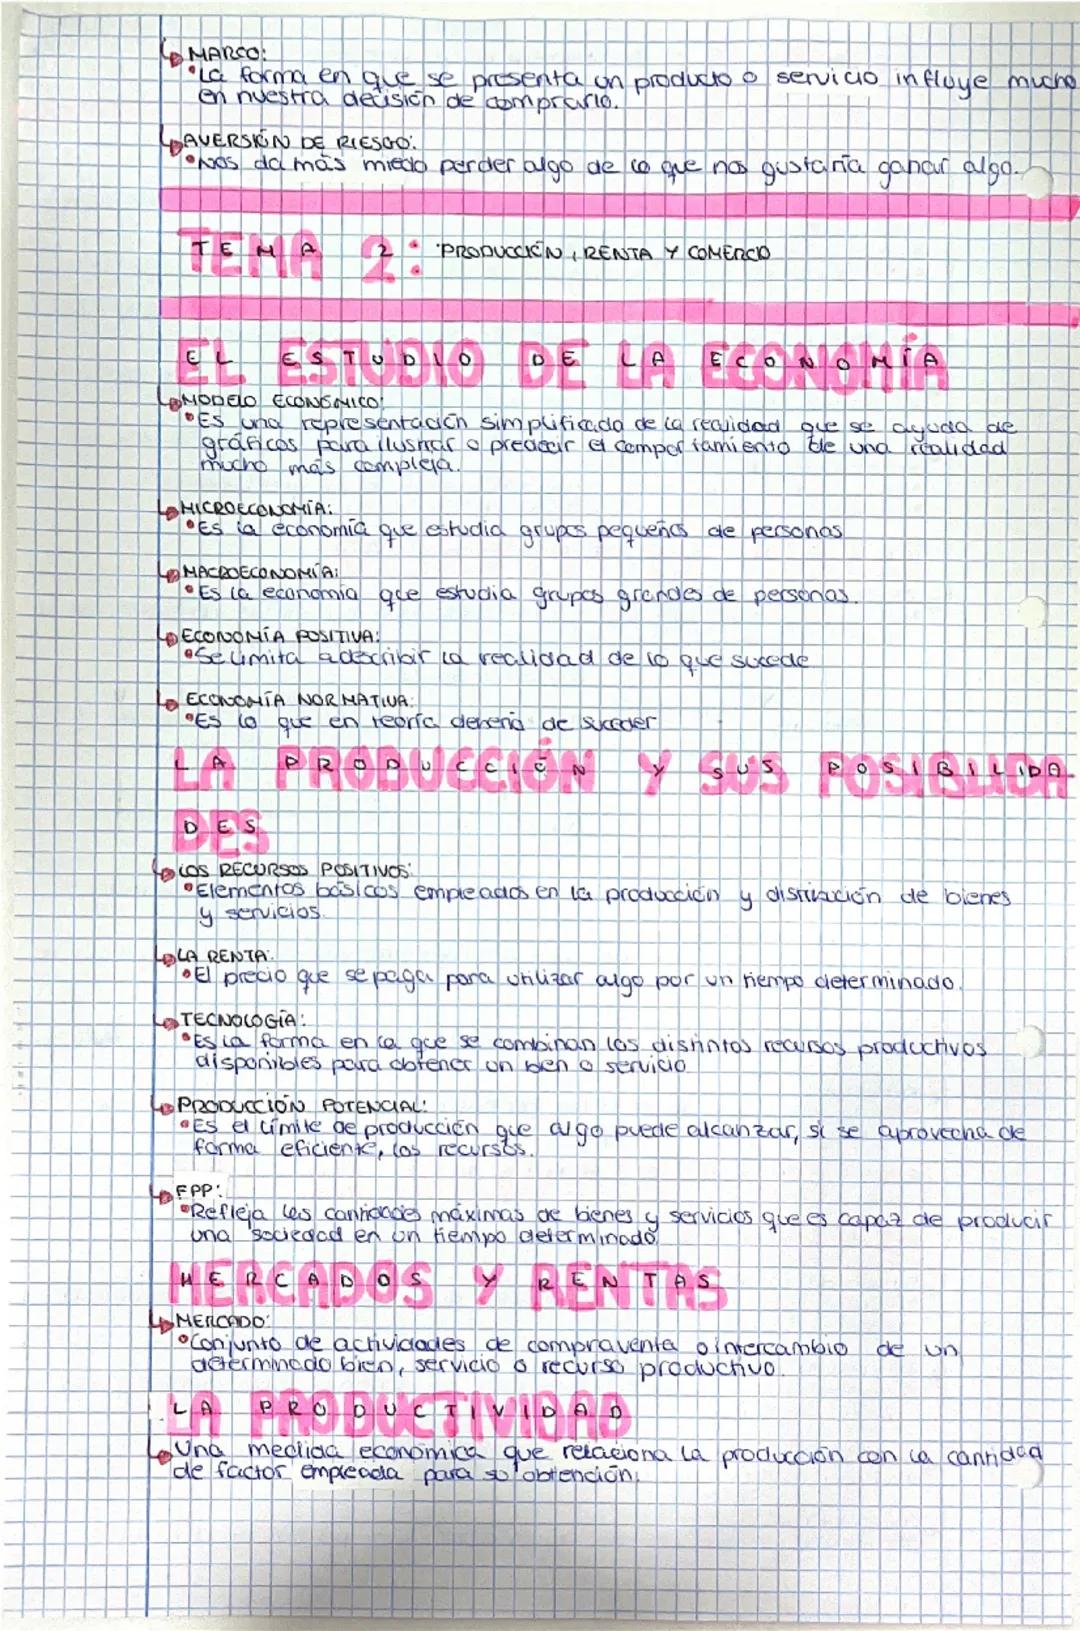 MARCO:
La forma en que se presenta un producto o servicio influye mucho
en nuestra decisión de comprarlo.
AVERSIÓN DE RIESGO:
Nos da más miedo perder algo de lo que nos gustaría ganar algo.
TEMA 2: PRODUCCIÓN, RENTA Y COMERCIO
EL ESTUDIO DE LA ECONOMÍA
MODELO ECONÓMICO:
Es una representación simplificada de la realidad que se ayuda de
gráficos para ilustrar o predecir el comportamiento de una realidad
mucho más compleja.
MICROECONOMÍA:
Es la economía que estudia grupos pequeños de personas
MACROECONOMÍA:
Es la economía que estudia grupos grandes de personas.
ECONOMÍA POSITIVA:
Se limita a describir la realidad de lo que sucede
ECONOMÍA NORMATIVA:
Es lo que en teoría debería de suceder
LA PRODUCCIÓN Y SUS POSIBILIDA
DES
LOS RECURSOS POSITIVOS:
Elementos básicos empleados en la producción y distriación de bienes
y servicios.
LA RENTA:
El precio que se paga para utilizar algo por un tiempo determinado.
TECNOLOGÍA:
Es la forma en la que se combinan los distintos recursos productivos
disponibles para obtener un bien o servicio
PRODUCCIÓN POTENCIAL:
Es el límite de producción que algo puede alcanzar, si se aprovecha de
forma eficiente, los recursos.
FPP:
Refleja las cantidades máximas de bienes y servicios que es capaz de producir
una sociedad en un tiempo determinado.
MERCADOS Y RENTAS
MERCADO:
Conjunto de actividades de compraventa o intercambio de un
determinado bien, servicio o recurso productivo.
LA PRODUCTIVIDAD
Una medida económica que relaciona la producción con la cantidad
de factor empleada para su obtención.